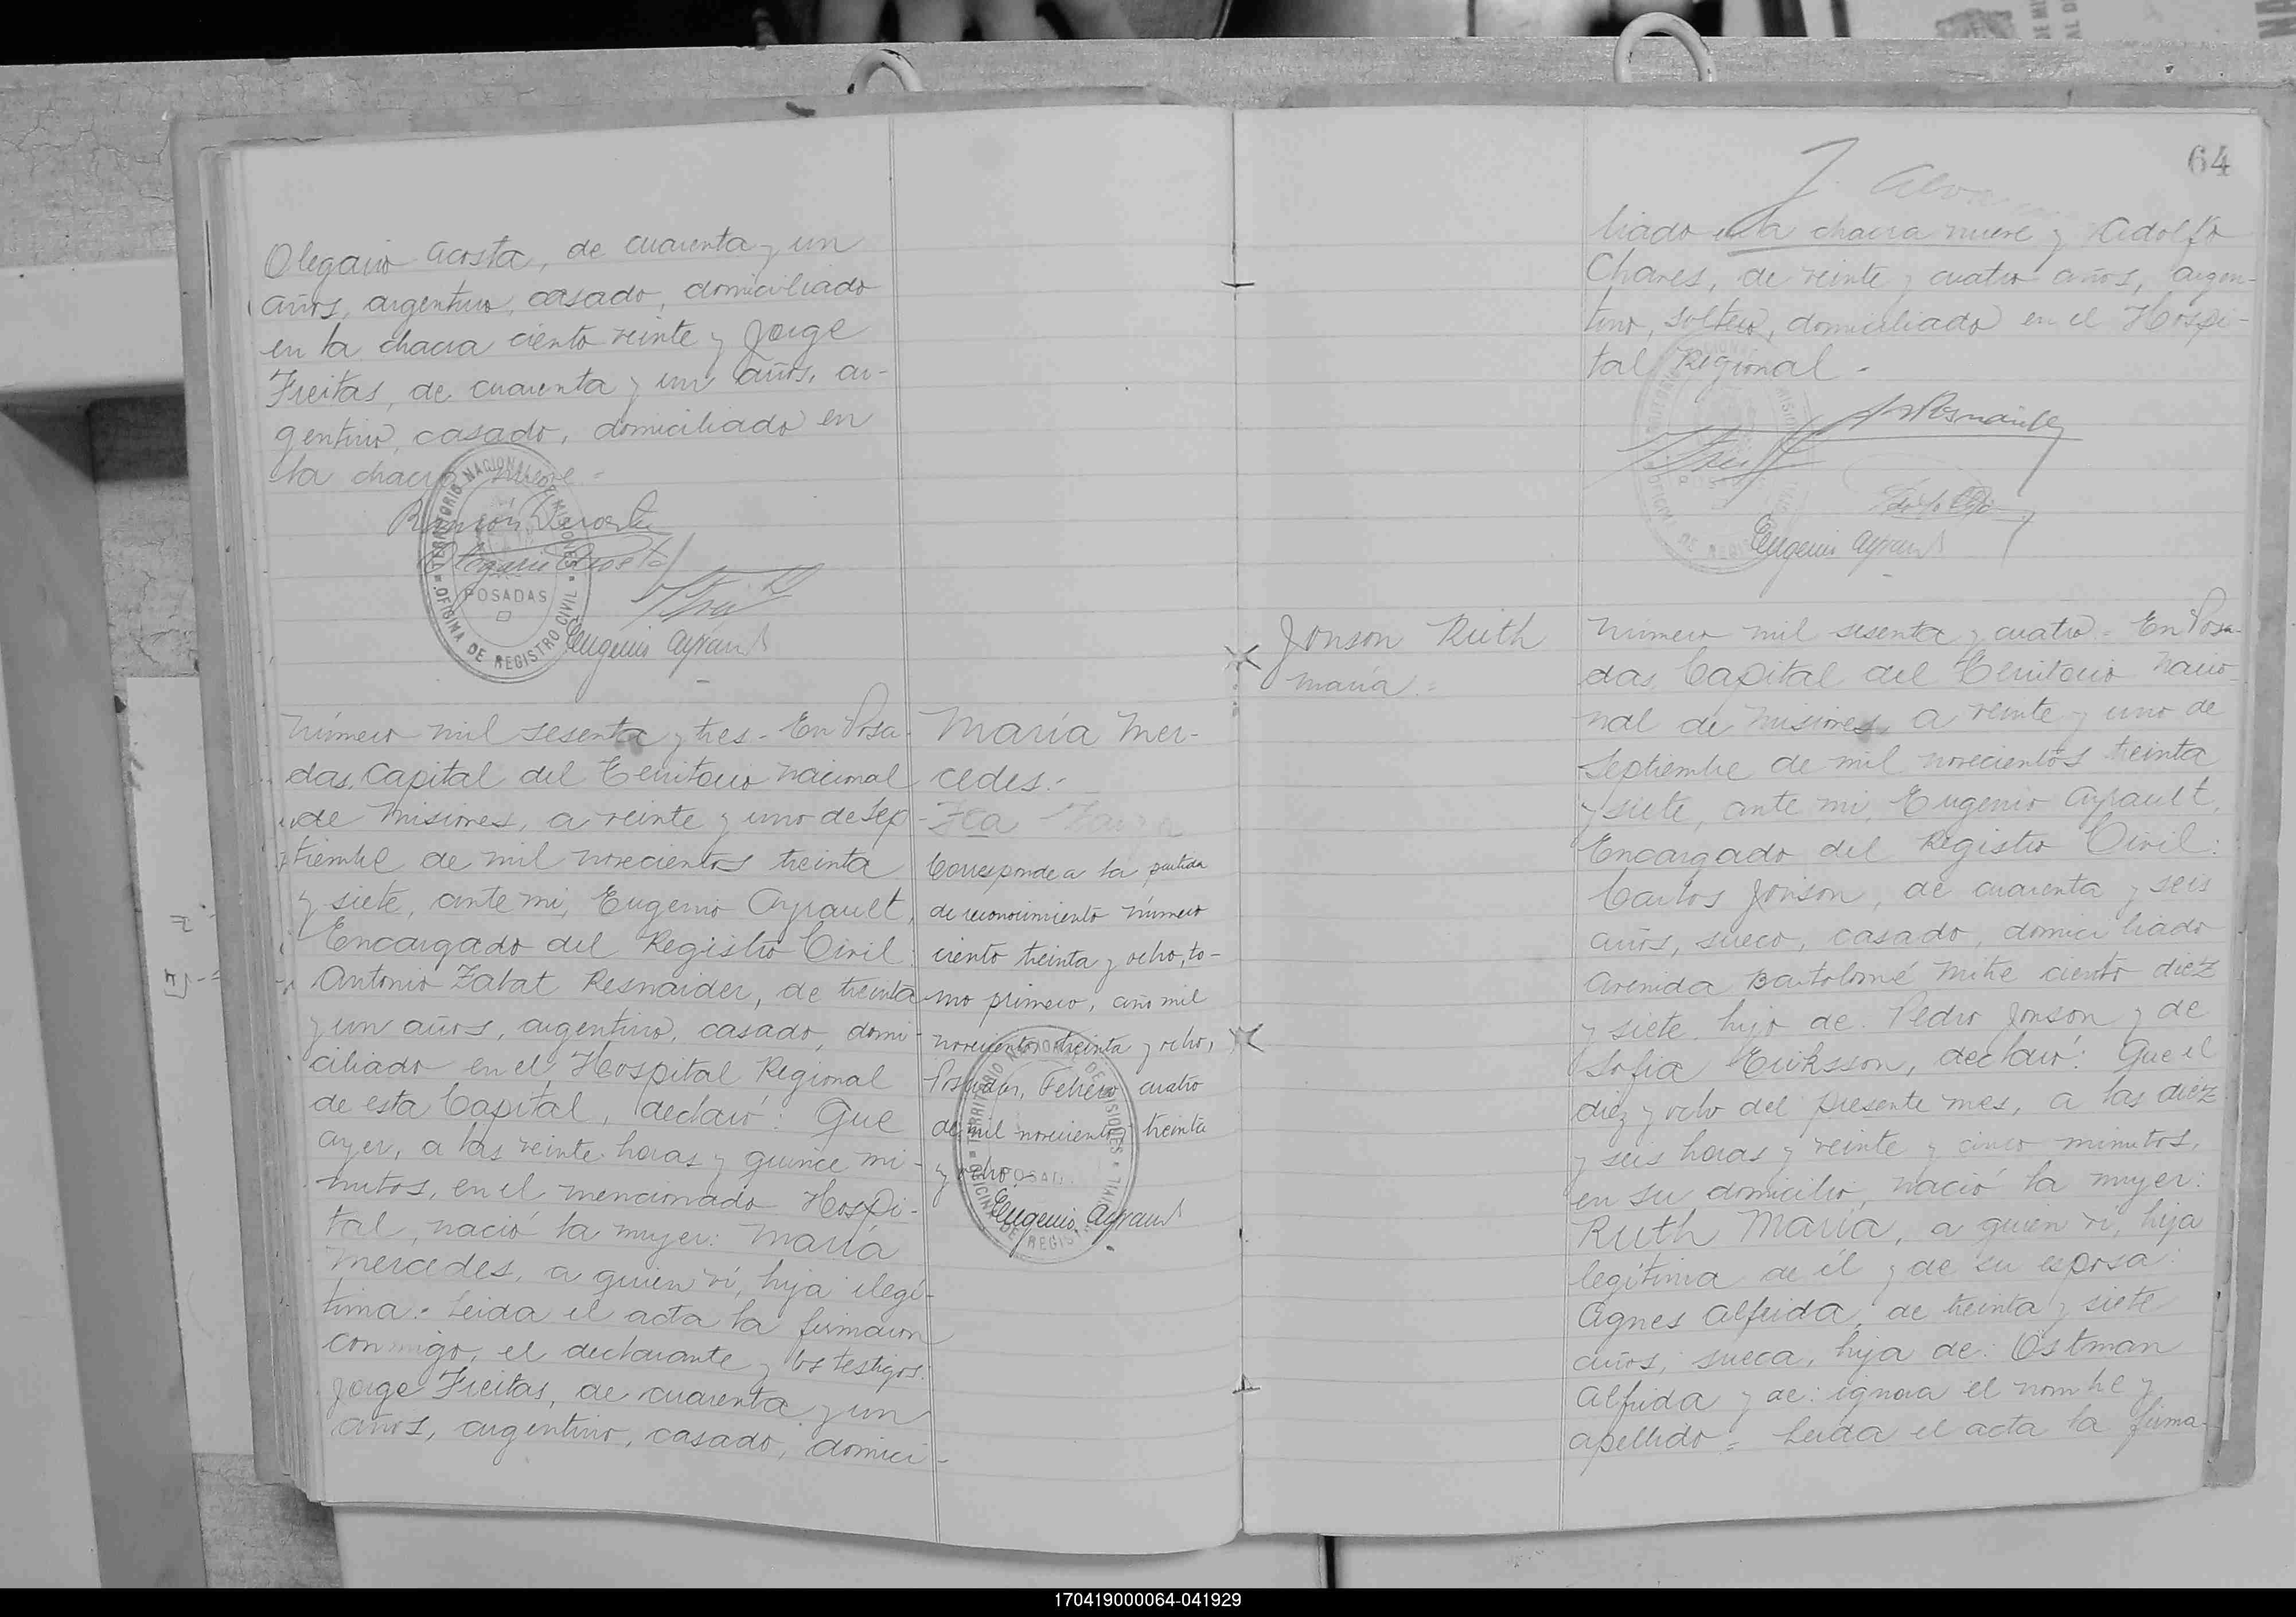 Olegario Acosta, de cuarenta y un
años, argentino, casado, domiciliado
en la chacra ciento veinte y Jorge
Freitas, de cuarenta y un años, ar-
gentino, casado, domiciliado en
la chacra nueve =
Olegario Acosta
TERRITORIO NACIONAL DE MISIONES
POSADAS
OFICINA DE REGISTRO CIVIL
Eugenio Ayrault
Número mil sesenta y tres - En Posa-
das, Capital del Territorio Nacional
de Misiones, a veinte y uno de Sep-
tiembre de mil novecientos treinta
y siete, ante mi, Eugenio Ayrault,
Encargado del Registro Civil:
Antonio Zabat Resnaider, de treinta
y un años, argentino, casado, domi-
ciliado en el Hospital Regional
de esta Capital, declaró: Que
ayer, a las veinte horas y quince mi-
nutos, en el mencionado Hospi-
tal, nació la mujer: María
Mercedes, a quien ví, hija ilegí-
tima. Leida el acta la firmaron
conmigo, el declarante y los testigos:
Jorge Freitas, de cuarenta y un
años, argentino, casado, domici-
María Mer-
cedes.-
Corresponde a la partida
de reconocimiento número
ciento treinta y ocho, to-
mo primero, año mil
novecientos treinta y ocho,
Posadas, Febrero cuatro
de mil novecientos treinta
y ocho.
TERRITORIO NACIONAL DE MISIONES
OFICINA DE REGISTRO CIVIL
Eugenio Ayrault
64
liado en la chacra nueve y Adolfo
Chaves, de veinte y cuatro años, argen-
tino, soltero, domiciliado en el Hospi-
tal Regional -
Eugenio Ayrault
Jonson Ruth
María =
Número mil sesenta y cuatro = En Posa-
das, Capital del Territorio Nacio-
nal de Misiones, a veinte y uno de
Septiembre de mil novecientos treinta
y siete, ante mi, Eugenio Ayrault,
Encargado del Registro Civil:
Carlos Jonson, de cuarenta y seis
años, sueco, casado, domiciliado
Avenida Bartolomé Mitre ciento diez
y siete, hijo de: Pedro Jonson y de
Sofia Eriksson, declaró: Que el
diez y ocho del presente mes, a las diez
y seis horas y veinte y cinco minutos,
en su domicilio, nació la mujer:
Ruth María, a quien ví, hija
legítima de él y de su esposa:
Agnes Alfrida, de treinta y siete
años, sueca, hija de: Ostman
Alfrida y de: ignora el nombre y
apellido = Leida el acta la firma-
170419000064-041929